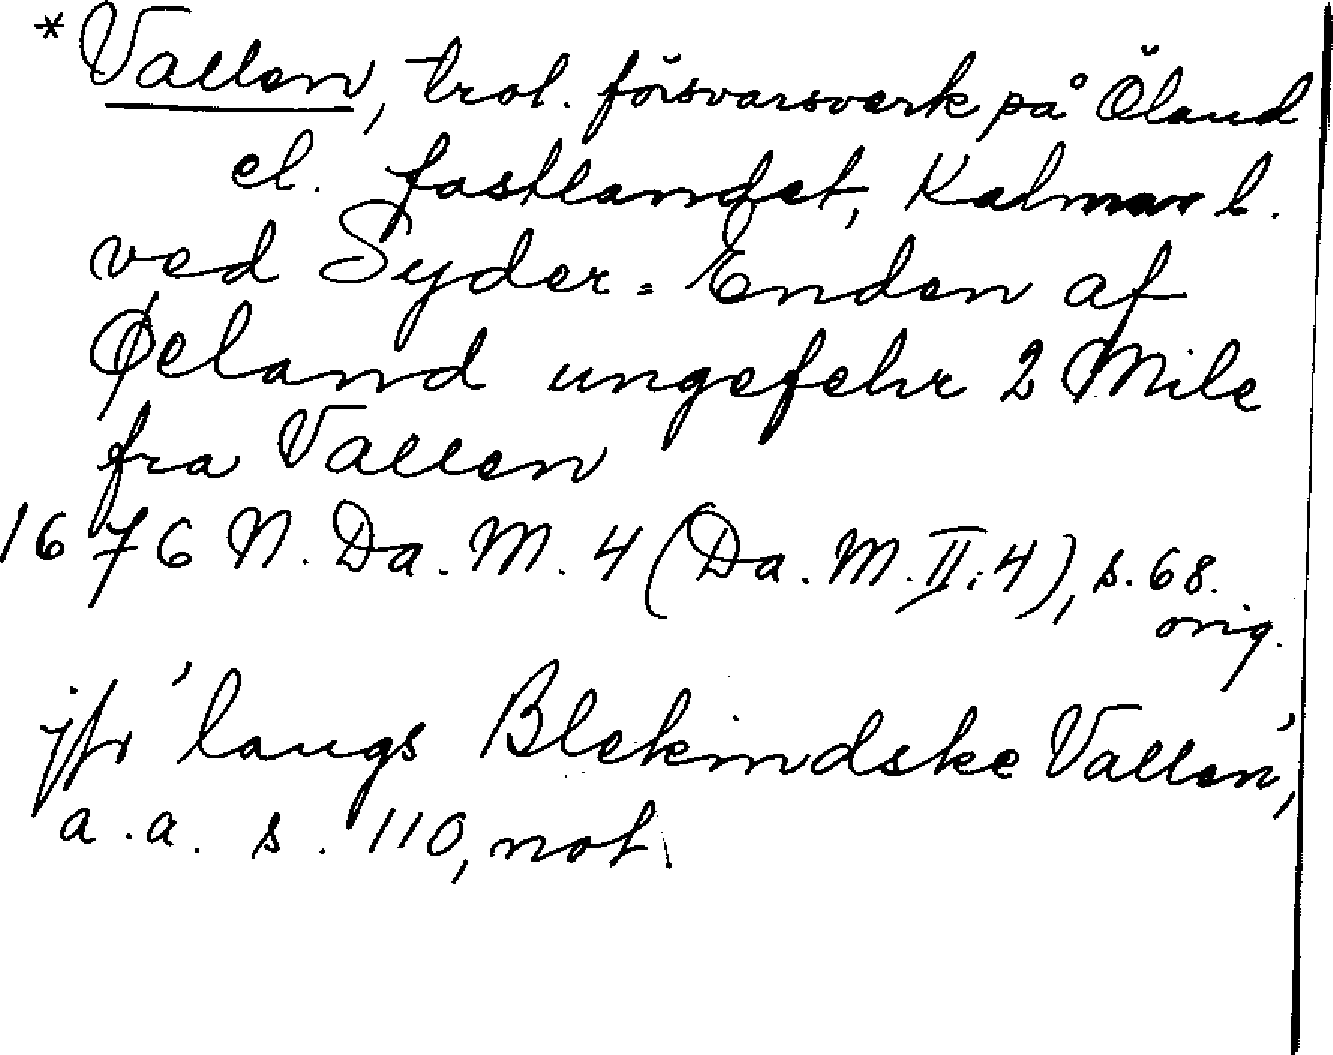 *Vallen, trol. försvarsverk på Öland
el. fastlandet, Kalmar l.
ved Syder-Enden af
Øeland ungefehr 2 Mile
fra Vallen
1676 N. Da. M. 4 (Da. M. II:4), s. 68.
orig.
jfr 'langs Blekindske Vallen',
a. a. s. 110, not